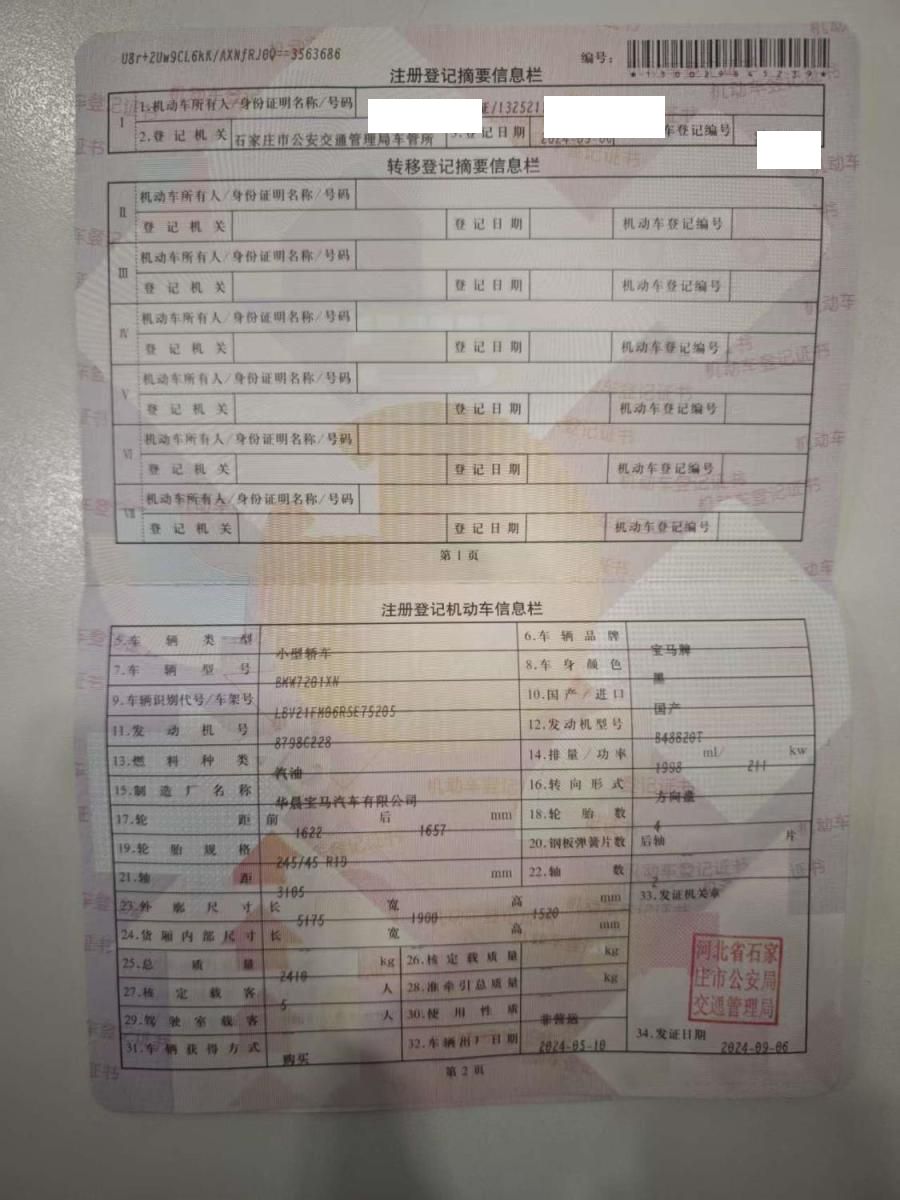 U8r+2Uw9CL6kK/AXNfRJ0Q==3563686
编号:
*130029845239*
注册登记摘要信息栏
I
1.机动车所有人/身份证明名称/号码 证/132521
2.登记机关 石家庄市公安交通管理局车管所 3.登记日期 2024-09-06 车登记编号
转移登记摘要信息栏
II 机动车所有人/身份证明名称/号码
登记机关 登记日期 机动车登记编号
III 机动车所有人/身份证明名称/号码
登记机关 登记日期 机动车登记编号
IV 机动车所有人/身份证明名称/号码
登记机关 登记日期 机动车登记编号
V 机动车所有人/身份证明名称/号码
登记机关 登记日期 机动车登记编号
VI 机动车所有人/身份证明名称/号码
登记机关 登记日期 机动车登记编号
VII 机动车所有人/身份证明名称/号码
登记机关 登记日期 机动车登记编号
第1页
注册登记机动车信息栏
5.车辆类型 小型轿车 6.车辆品牌 宝马牌
7.车辆型号 BMW7201XN 8.车身颜色 黑
9.车辆识别代号/车架号 LBV21FM06RSE75205 10.国产/进口 国产
11.发动机号 8798C228 12.发动机型号 B48B20T
13.燃料种类 汽油 14.排量/功率 1998 ml/ 211 kw
15.制造厂名称 华晨宝马汽车有限公司 16.转向形式 方向盘
17.轮距 前 1622 后 1657 mm 18.轮胎数 4
19.轮胎规格 245/45 R19 20.钢板弹簧片数 后轴 片
21.轴距 3105 mm 22.轴数 2
23.外廓尺寸 长 5175 宽 1900 高 1520 mm 33.发证机关章
24.货厢内部尺寸 长 宽 高 mm
25.总质量 2410 kg 26.核定载质量 kg
27.核定载客 5 人 28.准牵引总质量 kg
29.驾驶室载客 人 30.使用性质 非营运
31.车辆获得方式 购买 32.车辆出厂日期 2024-05-10 34.发证日期 2024-09-06
河北省石家
庄市公安局
交通管理局
第2页